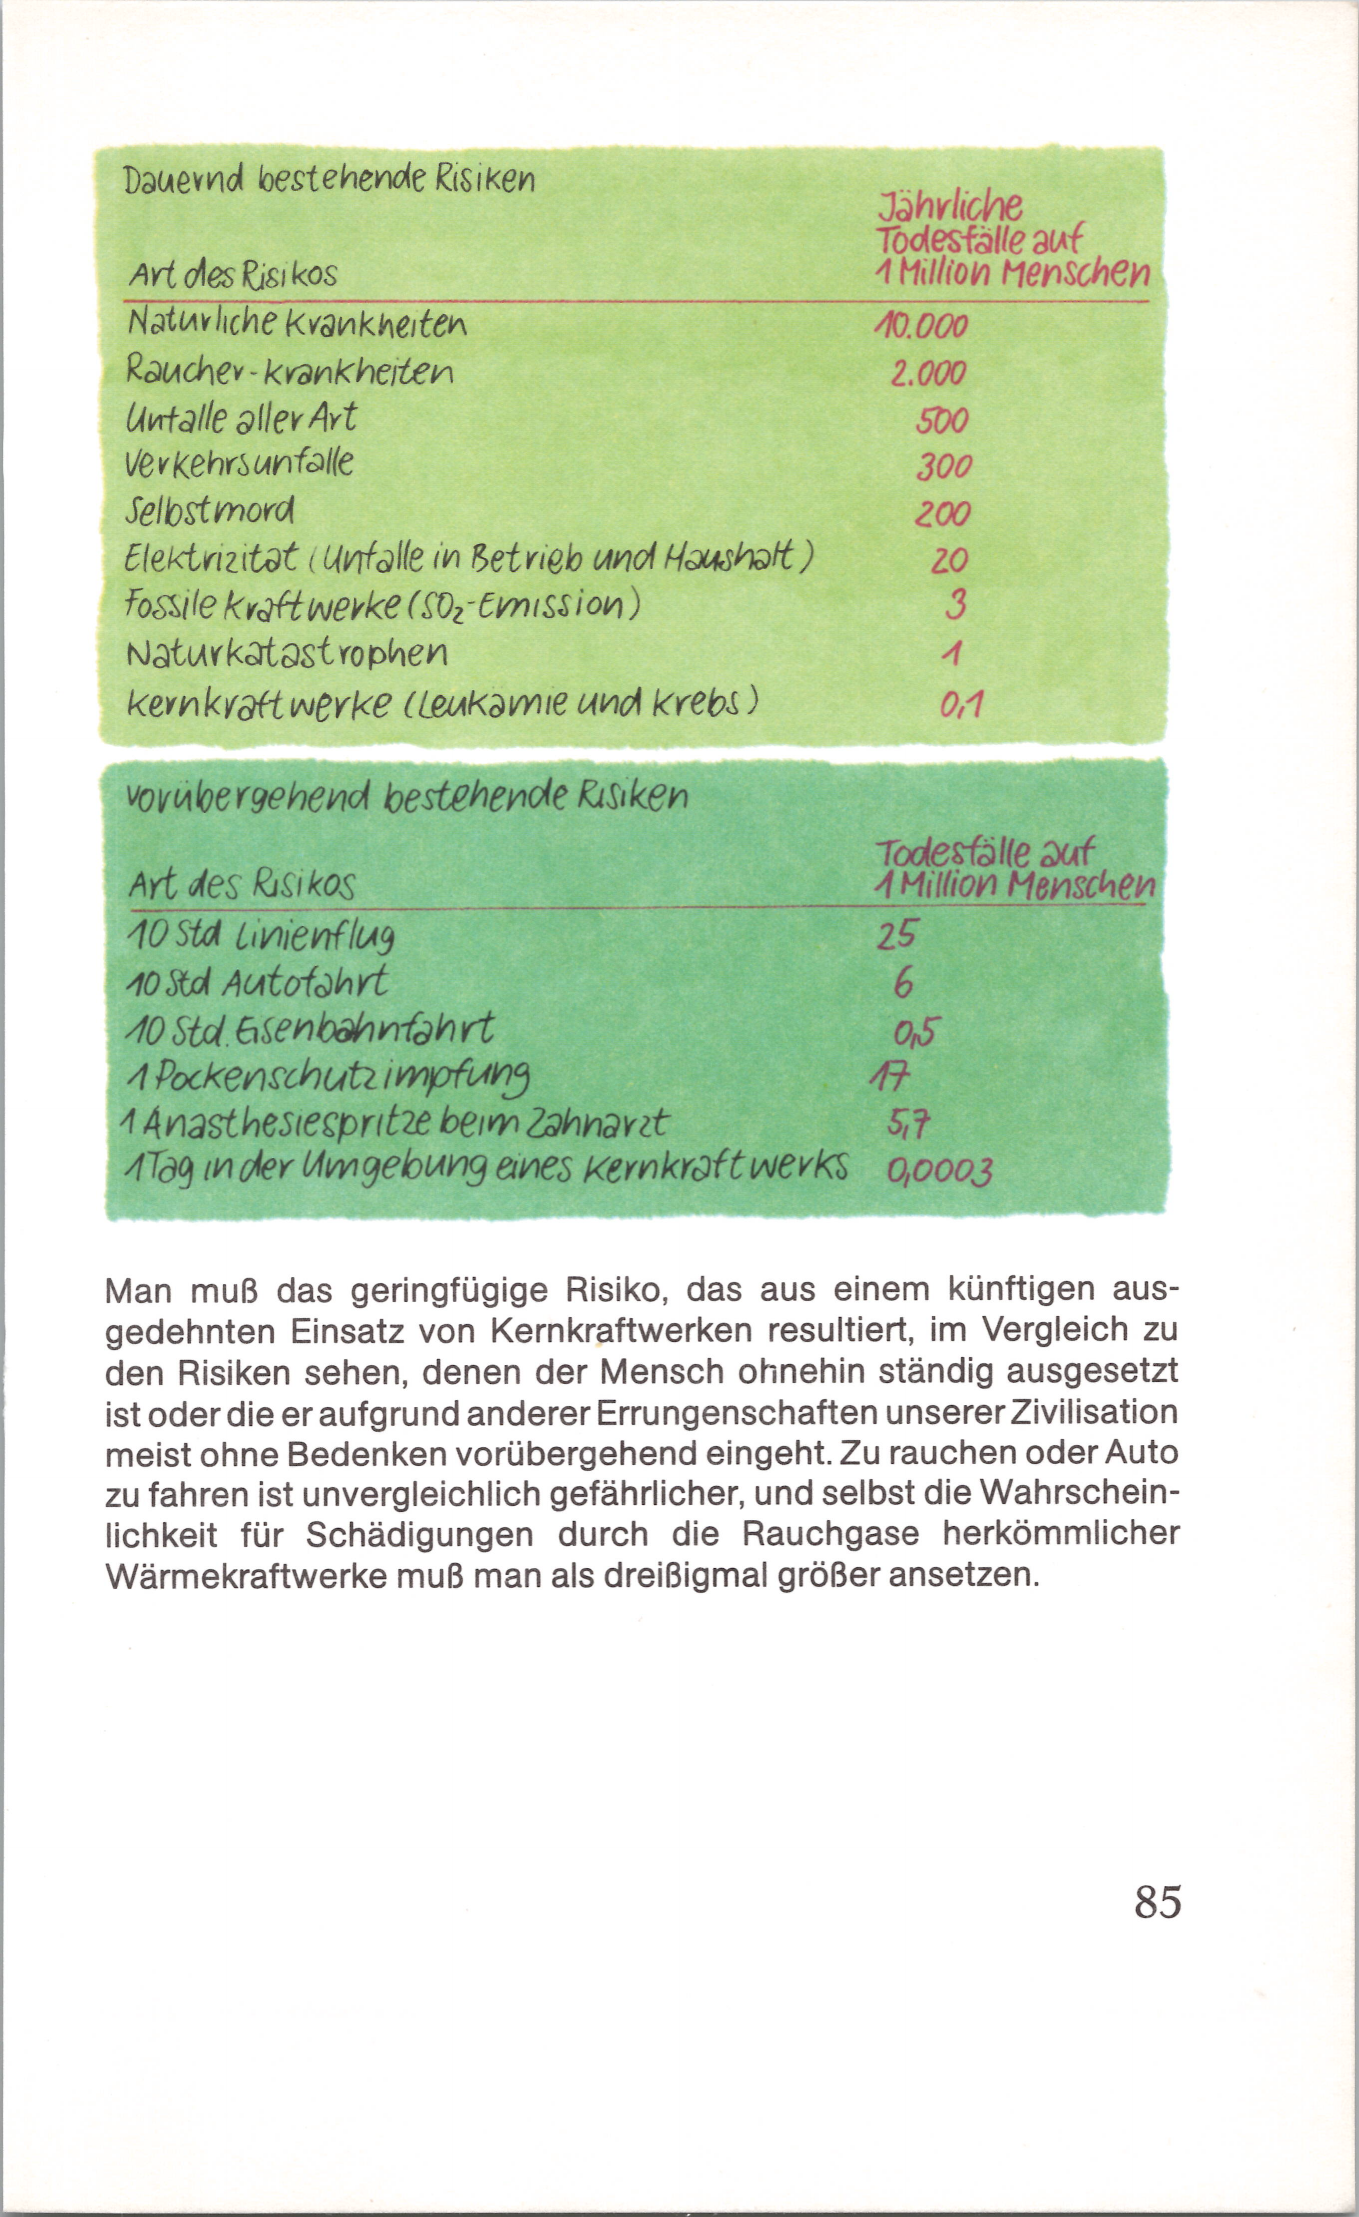 Dauernd bestehende Risiken
Jährliche
Todesfälle auf
Art des Risikos 1 Million Menschen
Naturliche Krankheiten 10.000
Raucher-krankheiten 2.000
Unfalle aller Art 500
Verkehrsunfalle 300
Selbstmord 200
Elektrizitat (Unfalle in Betrieb und Haushalt) 20
Fossile Kraftwerke (SO₂-Emission) 3
Naturkatastrophen 1
Kernkraftwerke (Leukamie und Krebs) 0,1
vorübergehend bestehende Risiken
Todesfälle auf
Art des Risikos 1 Million Menschen
10 Std Linienflug 25
10 Std Autofahrt 6
10 Std. Eisenbahnfahrt 0,5
1 Pockenschutzimpfung 17
1 Anasthesiespritze beim Zahnarzt 5,7
1 Tag in der Umgebung eines Kernkraftwerks 0,0003
Man muß das geringfügige Risiko, das aus einem künftigen aus-
gedehnten Einsatz von Kernkraftwerken resultiert, im Vergleich zu
den Risiken sehen, denen der Mensch ohnehin ständig ausgesetzt
ist oder die er aufgrund anderer Errungenschaften unserer Zivilisation
meist ohne Bedenken vorübergehend eingeht. Zu rauchen oder Auto
zu fahren ist unvergleichlich gefährlicher, und selbst die Wahrschein-
lichkeit für Schädigungen durch die Rauchgase herkömmlicher
Wärmekraftwerke muß man als dreißigmal größer ansetzen.
85